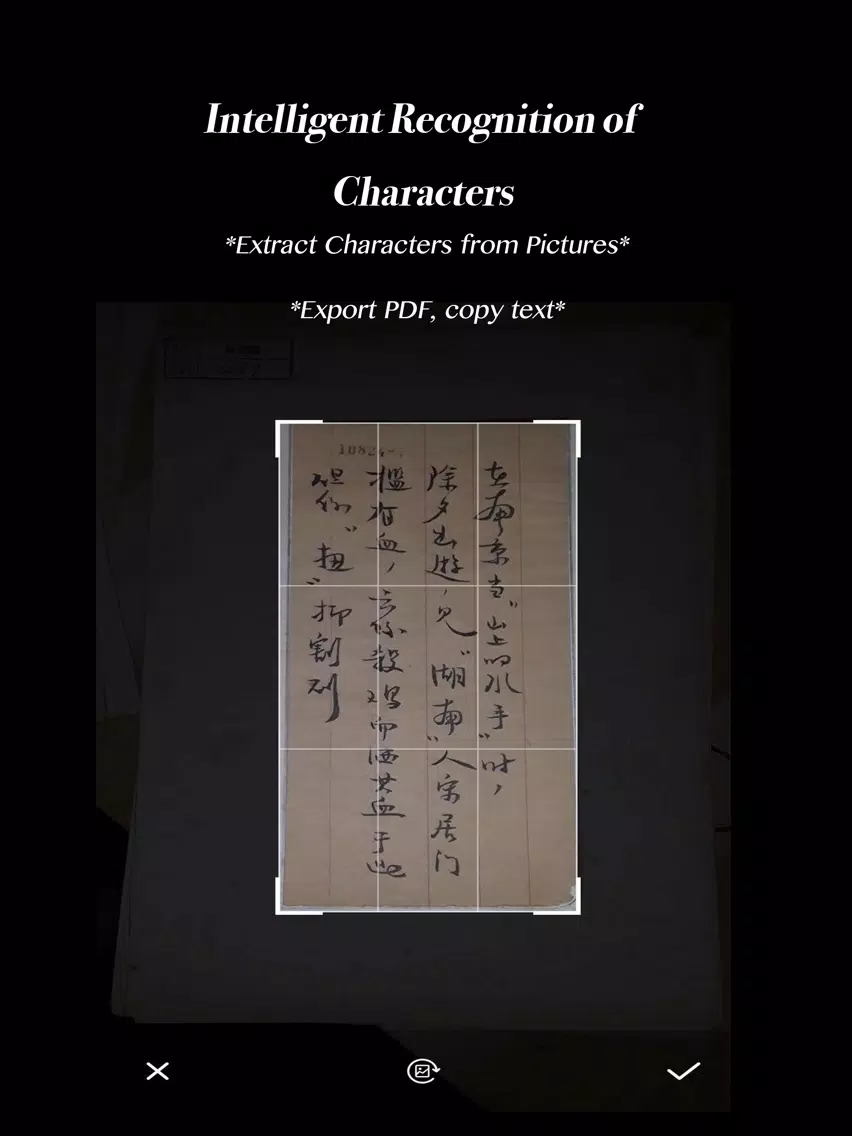 Intelligent Recognition of
Characters
*Extract Characters from Pictures*
*Export PDF, copy text*
在南京当“山上的水手”时，
除夕出遊，见“湖南”人家居门
槛有血，云係殺鸡而洒其血于此
“扭” 抑割